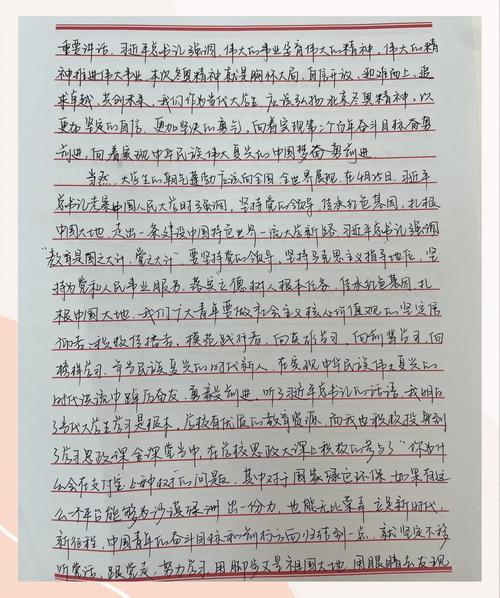 重要讲话。习近平总书记强调,伟大的事业孕育伟大的精神,伟大的精
神推进伟大事业。本次冬奥精神就是胸怀大局,自信开放,迎难而上,追
求卓越,共创未来。我们作为当代大学生应该弘扬北京冬奥精神,以
更加坚定的自信,更加坚决的勇气,向着实现第二个百年奋斗目标奋勇
前进,向着实现中华民族伟大复兴的中国梦奋勇前进。
当然,大学生的朝气蓬勃应该向全国,全世界展现,在4月25日,习近平
总书记考察中国人民大学时强调,坚持党的领导,传承红色基因,扎根
中国大地,走出一条建设中国特色世界一流大学新路。习近平总书记强调
“教育是国之大计,党之大计”要坚持党的领导,坚持马克思主义指导地位,坚
持为党和人民事业服务,落实立德树人根本任务,传承红色基因,扎
根中国大地。我们广大青年要做社会主义核心价值观的坚定信
仰者、积极传播者、模范践行者,向英雄学习,向前辈学习,向
榜样学习,争当民族复兴的时代新人,在实现中华民族伟大复兴的
时代洪流中踔厉奋发,勇毅前进。听了习近平总书记的话语,我明白
了当代大学生学习是根本,学校有优质的教育资源,而我也积极投身到
了学习思政课金课堂当中,在学校思政大课上积极的参与了“你为什
么会在支付宝上种树”的问题。其中对于国家绿色环保,如果有这
么一个平台能够为沙漠绿洲出一份力,也能无比荣幸。在新时代,
新征程,中国青年的奋斗目标和前行方向归结到一点,就坚定不移
听党话,跟党走,努力学习,用脚步丈量祖国大地,用眼睛去发现